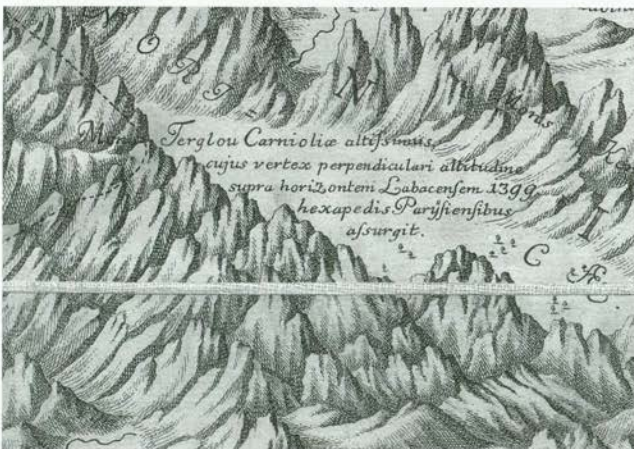 NORI
N
Mons
Mons Terglou Carnioliæ altissimus,
cujus vertex perpendiculari altitudine
supra horizontem Labacensem 1399.
hexapedis Parÿsiensibus
assurgit.
T
C
Æ